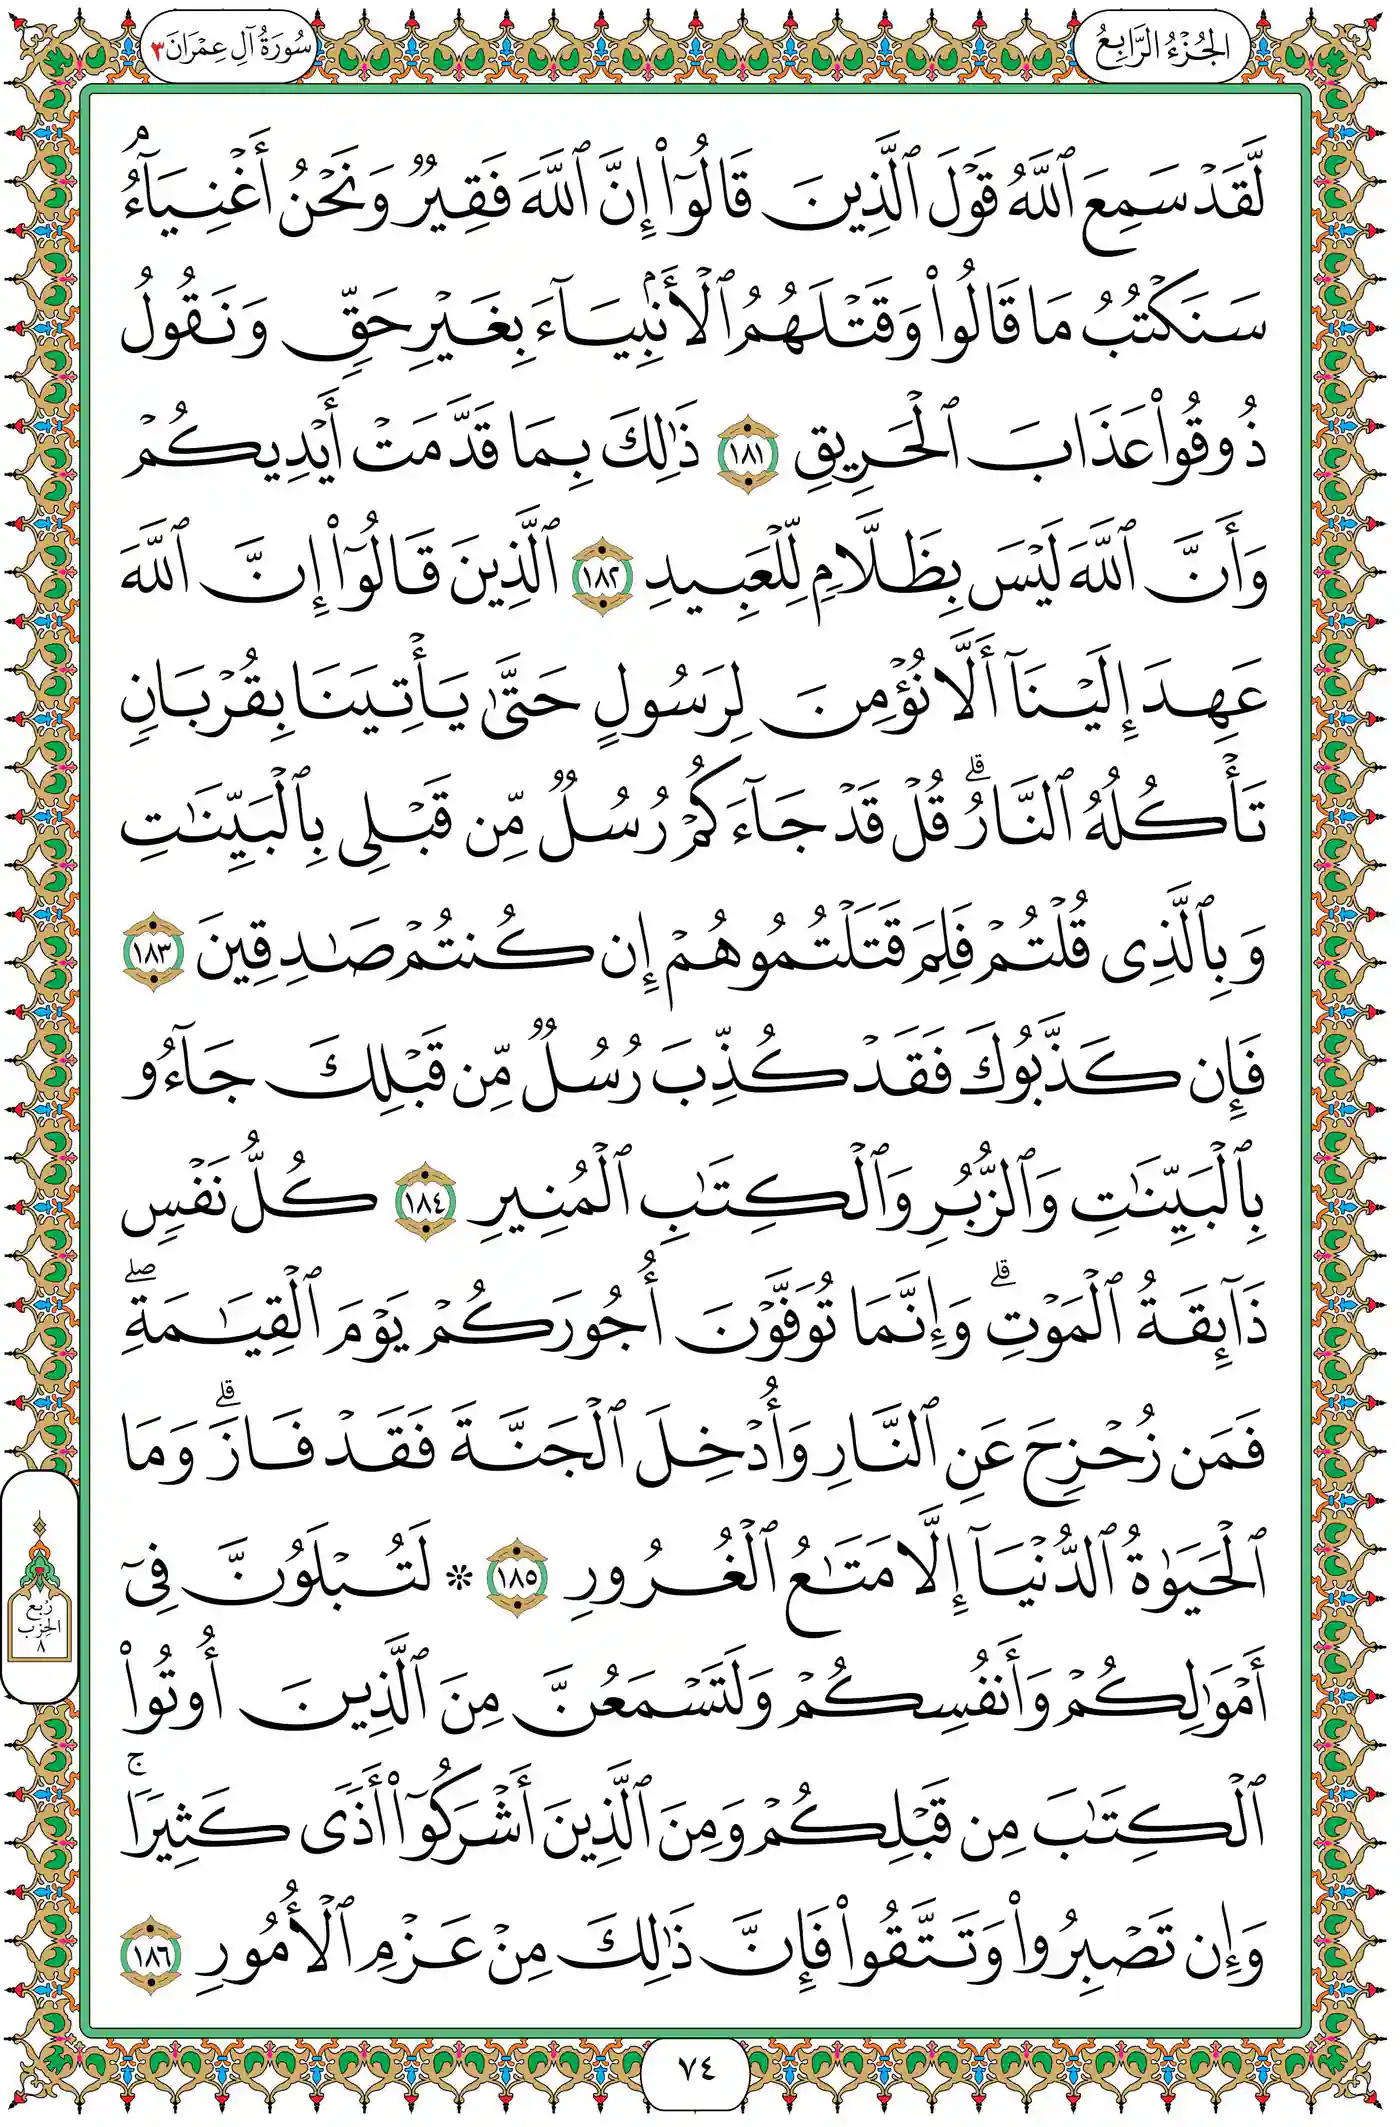 الجُزْءُ الرَّابِعُ
سُورَةُ آلِ عِمْرَانَ ٣
لَّقَدْ سَمِعَ ٱللَّهُ قَوْلَ ٱلَّذِينَ قَالُوٓا۟ إِنَّ ٱللَّهَ فَقِيرٌ وَنَحْنُ أَغْنِيَآءُ ۘ
سَنَكْتُبُ مَا قَالُوا۟ وَقَتْلَهُمُ ٱلْأَنۢبِيَآءَ بِغَيْرِ حَقٍّ وَنَقُولُ
ذُوقُوا۟ عَذَابَ ٱلْحَرِيقِ ١٨١ ذَٰلِكَ بِمَا قَدَّمَتْ أَيْدِيكُمْ
وَأَنَّ ٱللَّهَ لَيْسَ بِظَلَّامٍ لِّلْعَبِيدِ ١٨٢ ٱلَّذِينَ قَالُوٓا۟ إِنَّ ٱللَّهَ
عَهِدَ إِلَيْنَآ أَلَّا نُؤْمِنَ لِرَسُولٍ حَتَّىٰ يَأْتِيَنَا بِقُرْبَانٍ
تَأْكُلُهُ ٱلنَّارُ ۗ قُلْ قَدْ جَآءَكُمْ رُسُلٌ مِّن قَبْلِى بِٱلْبَيِّنَـٰتِ
وَبِٱلَّذِى قُلْتُمْ فَلِمَ قَتَلْتُمُوهُمْ إِن كُنتُمْ صَـٰدِقِينَ ١٨٣
فَإِن كَذَّبُوكَ فَقَدْ كُذِّبَ رُسُلٌ مِّن قَبْلِكَ جَآءُو
بِٱلْبَيِّنَـٰتِ وَٱلزُّبُرِ وَٱلْكِتَـٰبِ ٱلْمُنِيرِ ١٨٤ كُلُّ نَفْسٍ
ذَآئِقَةُ ٱلْمَوْتِ ۗ وَإِنَّمَا تُوَفَّوْنَ أُجُورَكُمْ يَوْمَ ٱلْقِيَـٰمَةِ ۖ
فَمَن زُحْزِحَ عَنِ ٱلنَّارِ وَأُدْخِلَ ٱلْجَنَّةَ فَقَدْ فَازَ ۗ وَمَا
ٱلْحَيَوٰةُ ٱلدُّنْيَآ إِلَّا مَتَـٰعُ ٱلْغُرُورِ ١٨٥ * لَتُبْلَوُنَّ فِىٓ
أَمْوَٰلِكُمْ وَأَنفُسِكُمْ وَلَتَسْمَعُنَّ مِنَ ٱلَّذِينَ أُوتُوا۟
ٱلْكِتَـٰبَ مِن قَبْلِكُمْ وَمِنَ ٱلَّذِينَ أَشْرَكُوٓا۟ أَذًى كَثِيرًا ۚ
وَإِن تَصْبِرُوا۟ وَتَتَّقُوا۟ فَإِنَّ ذَٰلِكَ مِنْ عَزْمِ ٱلْأُمُورِ ١٨٦
رُبع
الحِزب
٨
٧٤